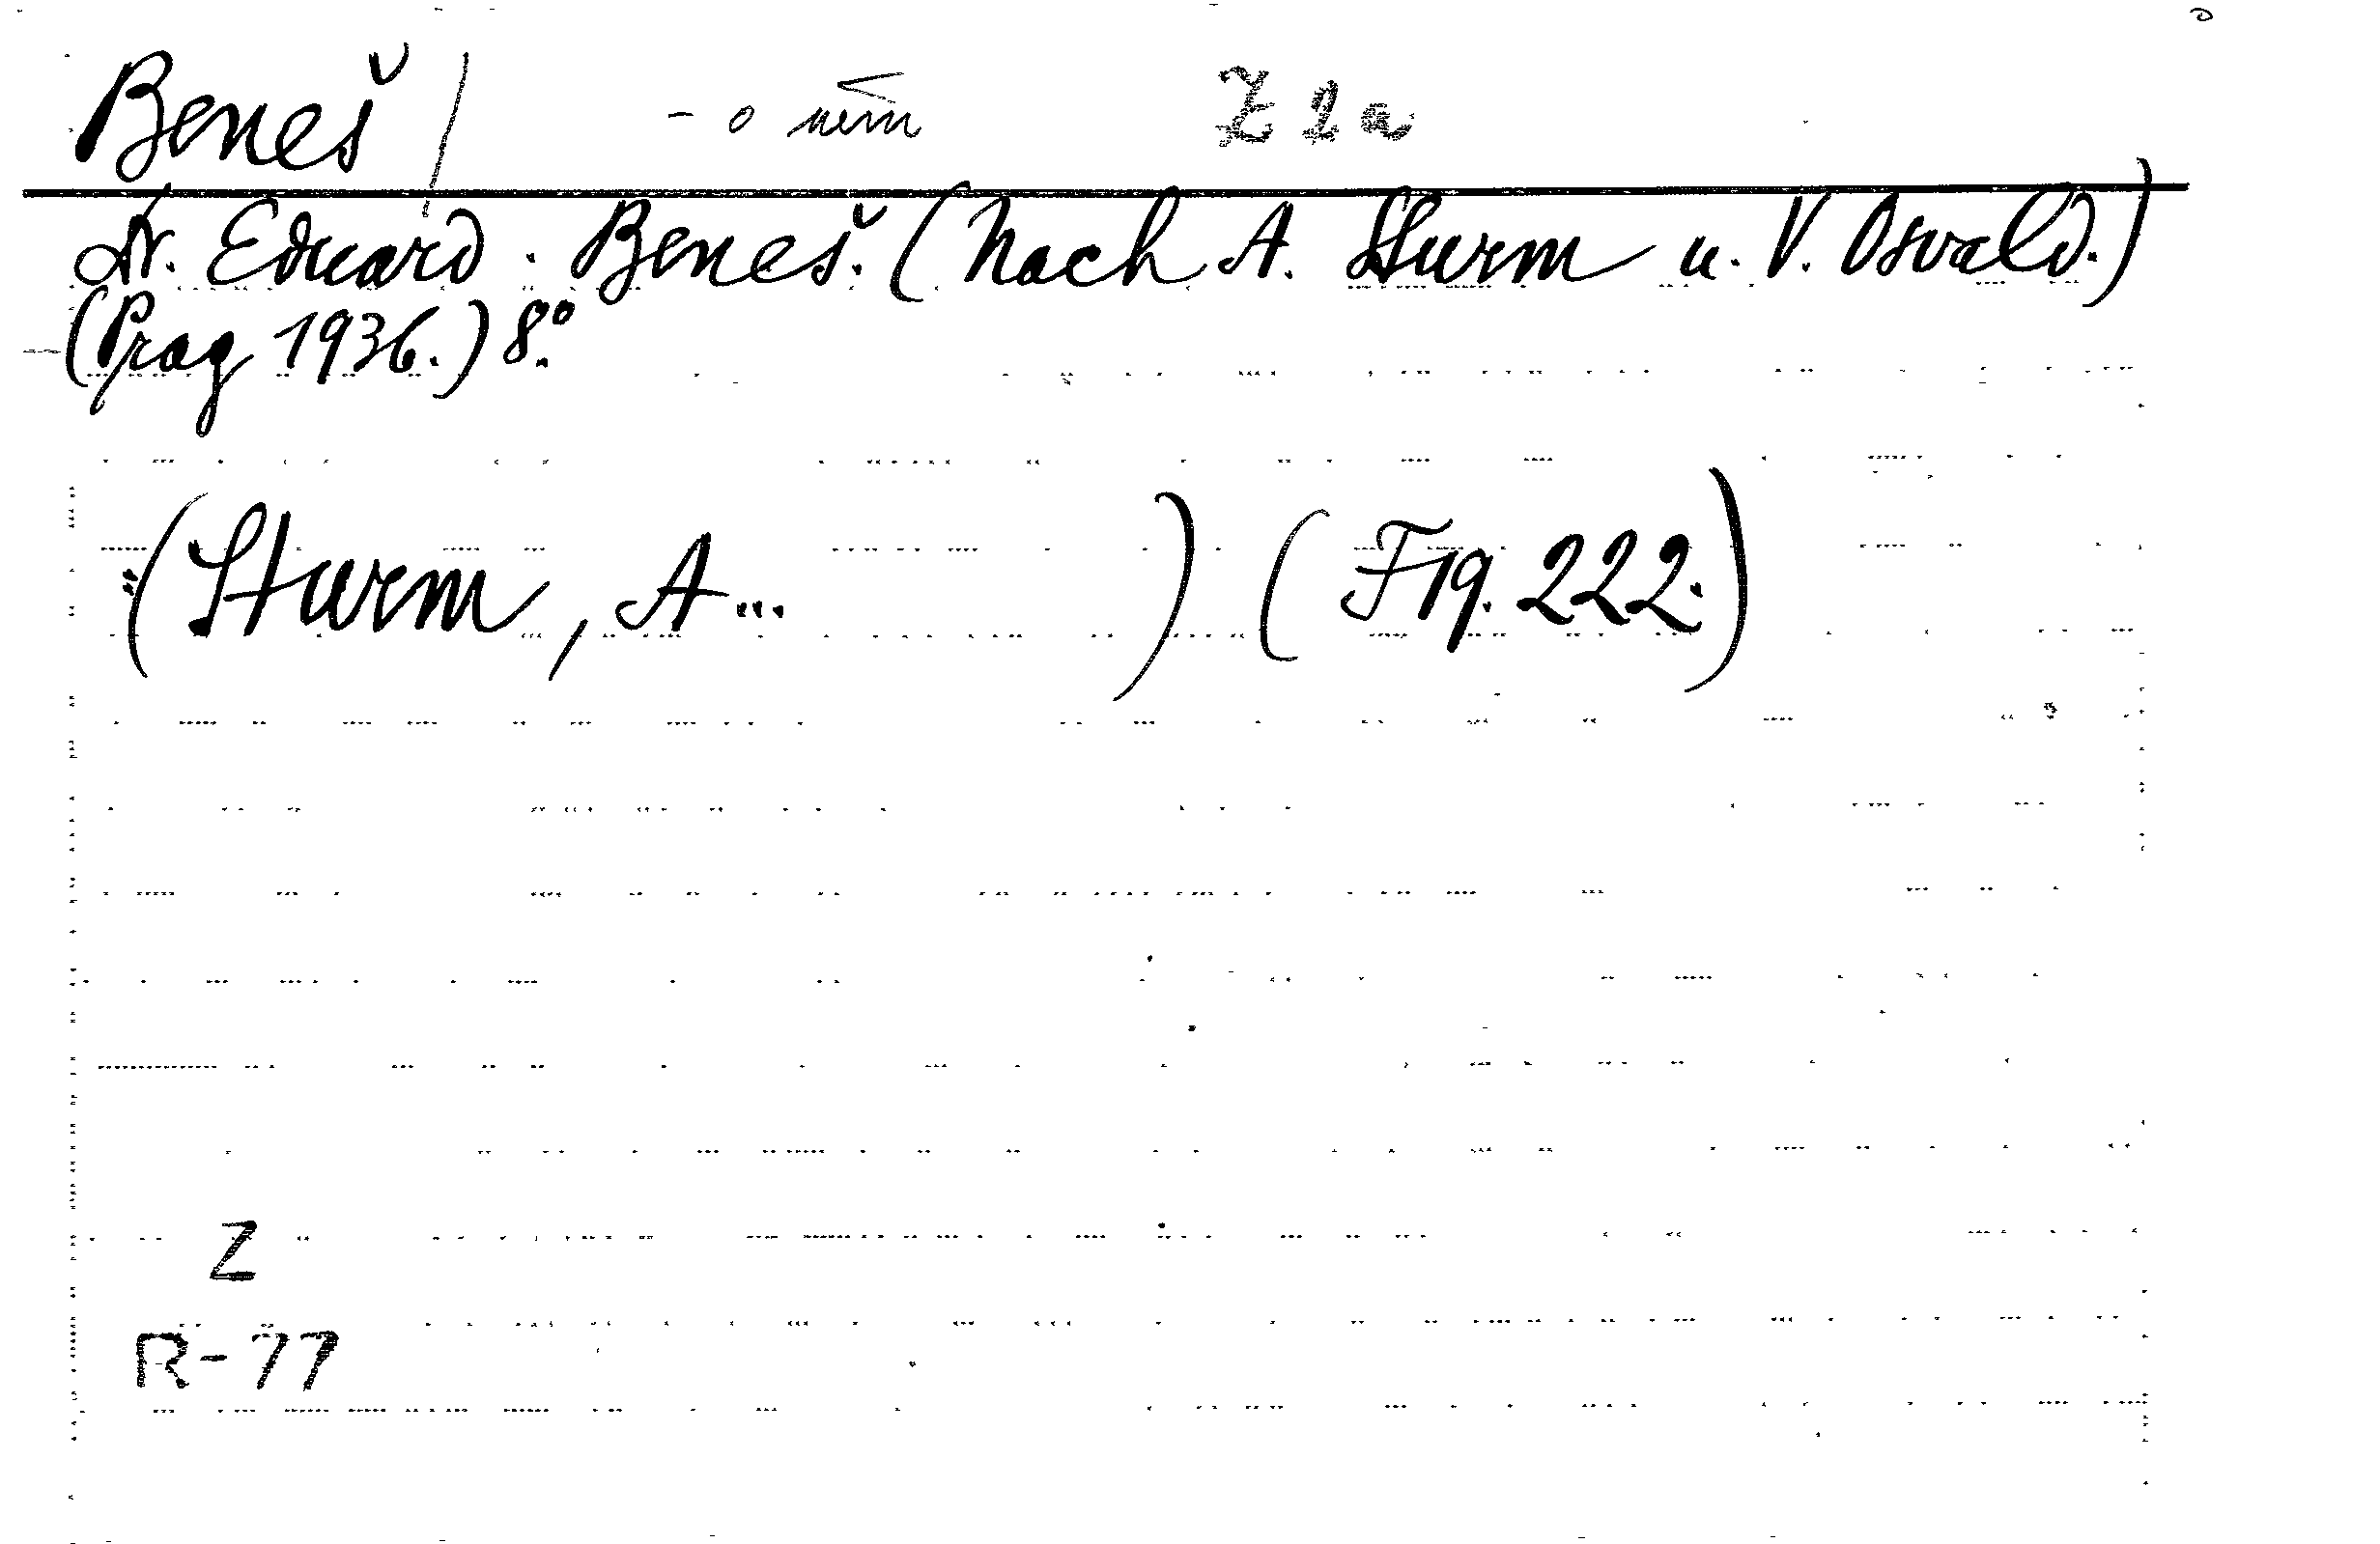 Beneš / - o něm Z 2 a
Dr. Eduard Beneš. (Nach A. Sturm u. V. Osvald.)
(Prag 1936.) 8.°
(Sturm, A... ) (F 19. 222.)
Z
R-77